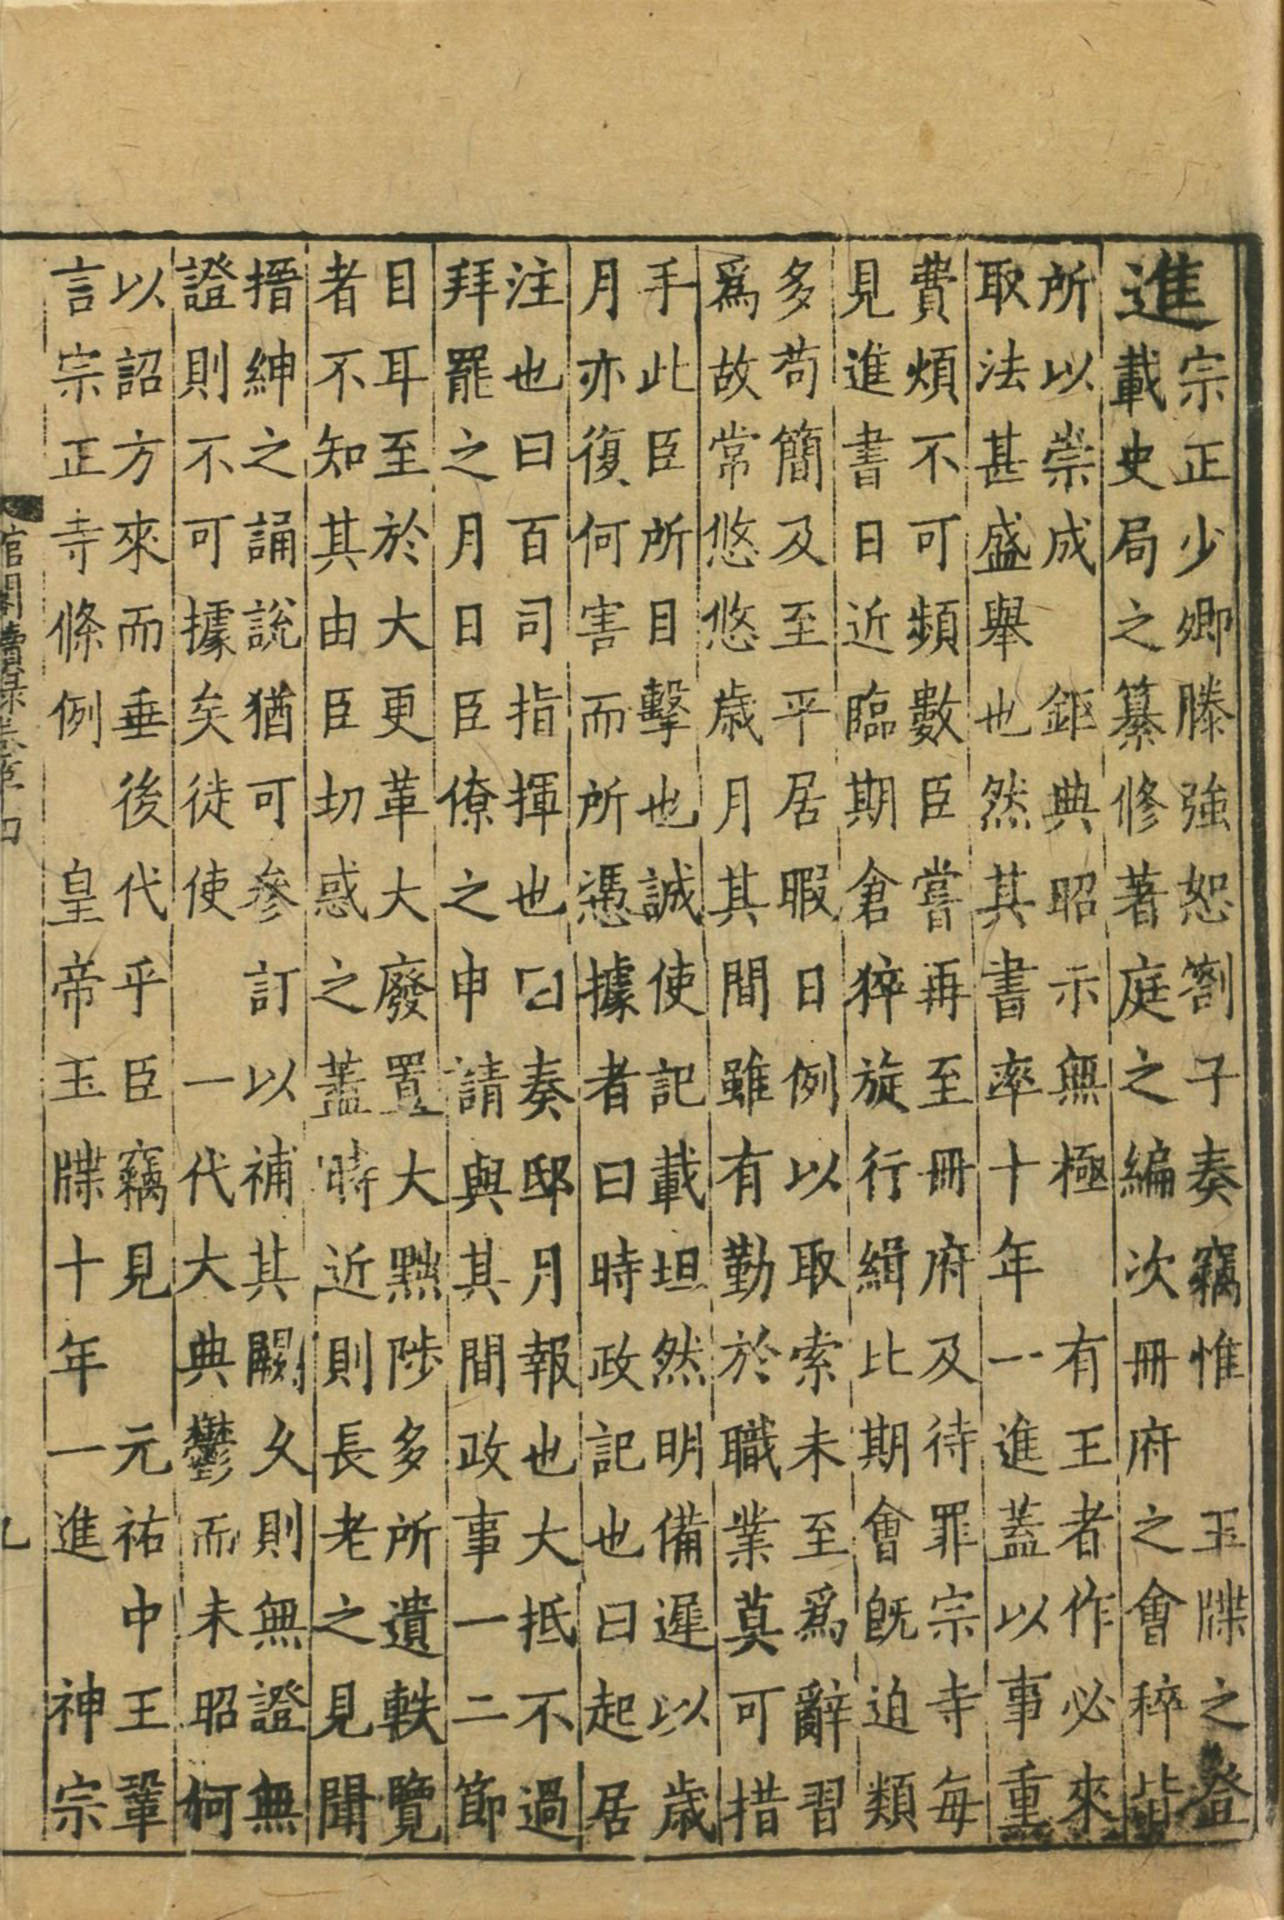 進宗正少卿滕強恕劄子奏竊惟　玉牒之登
載史局之纂修著庭之編次冊府之會稡皆
所以崇成　鉅典昭示無極　有王者作必來
取法甚盛舉也然其書率十年一進蓋以事重
費煩不可頻數臣嘗再至冊府及待罪宗寺每
見進書日近臨期倉猝旋行緝比期會旣迫類
多苟簡及至平居暇日例以取索未至爲辭習
爲故常悠悠歲月其間雖有勤於職業莫可措
手此臣所目擊也誠使記載坦然明備遲以歲
月亦復何害而所憑據者曰時政記也曰起居
注也曰百司指揮也曰奏邸月報也大抵不過
拜罷之月日臣僚之申請與其間政事一二節
目耳至於大更革大廢置大黜陟多所遺軼覽
者不知其由臣切惑之蓋時近則長老之見聞
搢紳之誦說猶可參訂以補其闕久則無證無
證則不可據矣徒使　一代大典鬱而未昭何
以詔方來而垂後代乎臣竊見　元祐中王鞏
言宗正寺條例　皇帝玉牒十年一進　神宗
館閣續錄卷第四
九